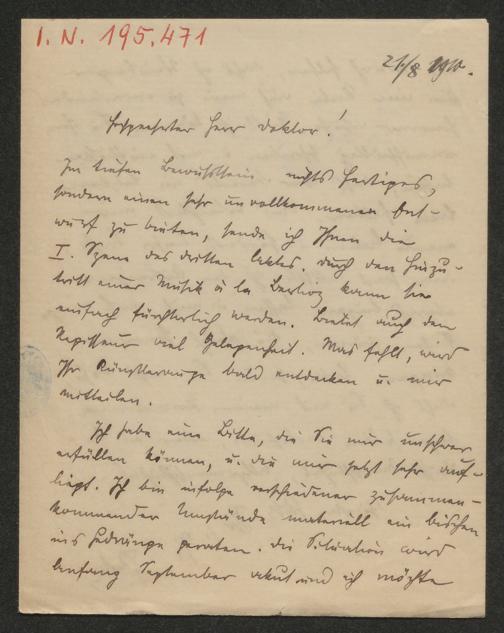 I. N. 195.471
21/8 1910.
Hochgeehrter Herr Doktor!
Im tiefen Bewußtsein nichts Fertiges,
sondern einen sehr unvollkommenen Ent-
wurf zu bieten, sende ich Ihnen die
I. Szene des dritten Aktes. Durch den Hinzu-
tritt einer Musik à la Berlioz kann sie
einfach fürchterlich werden. Bietet auch dem
Regisseur viel Gelegenheit. Was fehlt, wird
Ihr Künstlerauge bald entdecken u. mir
mitteilen.
Ich habe eine Bitte, die Sie mir unschwer
erfüllen können, u. die mir jetzt sehr auf-
liegt. Ich bin infolge verschiedener zusammen-
kommender Umstände materiell ein bischen
ins Gedränge geraten. Die Situation wird
Anfang September akut und ich möchte